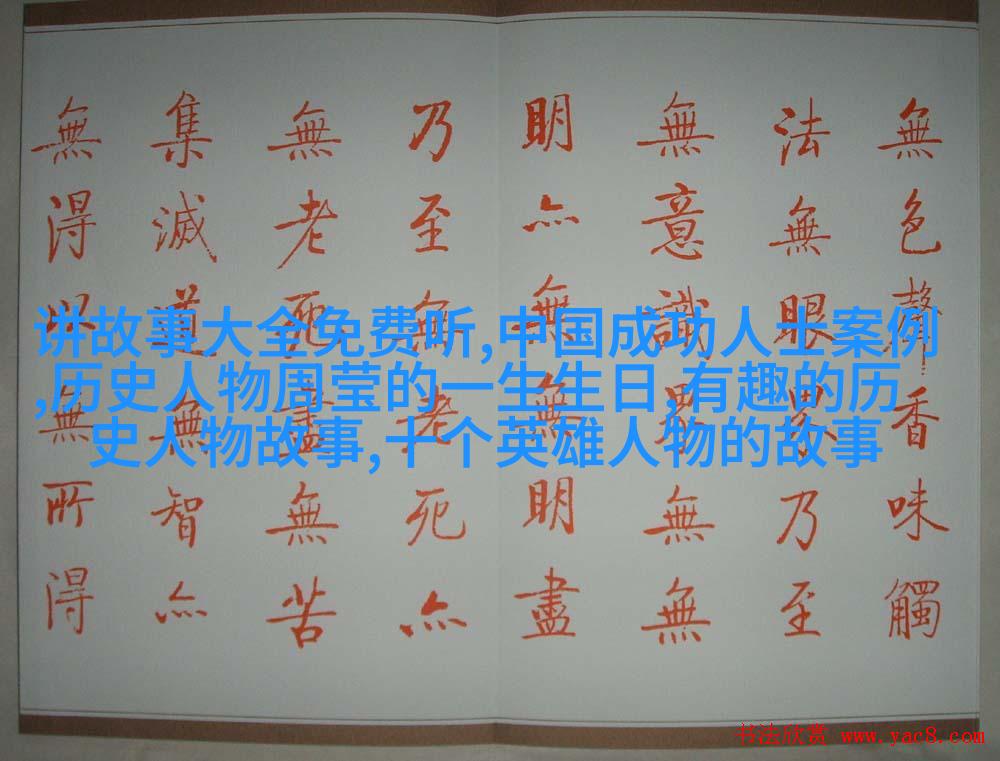 無色聲香味觸
法無眼界乃至
無意識界無無
明亦無無明盡
乃至無老死亦
無老死盡無苦
集滅道無智亦
無得以無所得
讲故事大全免费听,中国成功人士案例
,历史人物周莹的一生生日,有趣的历
史人物故事,十个英雄人物的故事
书法欣赏 www.yac8.com